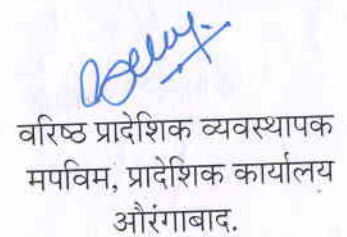 वरिष्ठ प्रादेशिक व्यवस्थापक
मपविम, प्रादेशिक कार्यालय
औरंगाबाद.